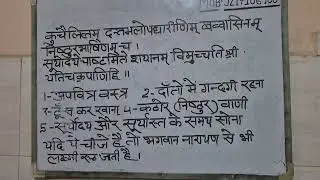 MOB-9217106700
कुचैलिनम् दन्तमलोपधारीणिम् बव्वासिनम्
निष्ठुरभाषिणम् च ।
सूर्योदये चास्तमिते शयानम् विमुच्चति श्री
र्यतिचक्रपाणिः ॥
1- अपवित्र वस्त्र 2- दाँतो मे गन्दगी रहना
3- ठूँस कर खाना 4- कठोर (निष्ठुर) वाणी
5- सूर्योदय और सूर्यास्त के समय सोना
यदि ये चीजे है, तो भगवान नारायण से भी
लक्ष्मी रूठ जाती है ।